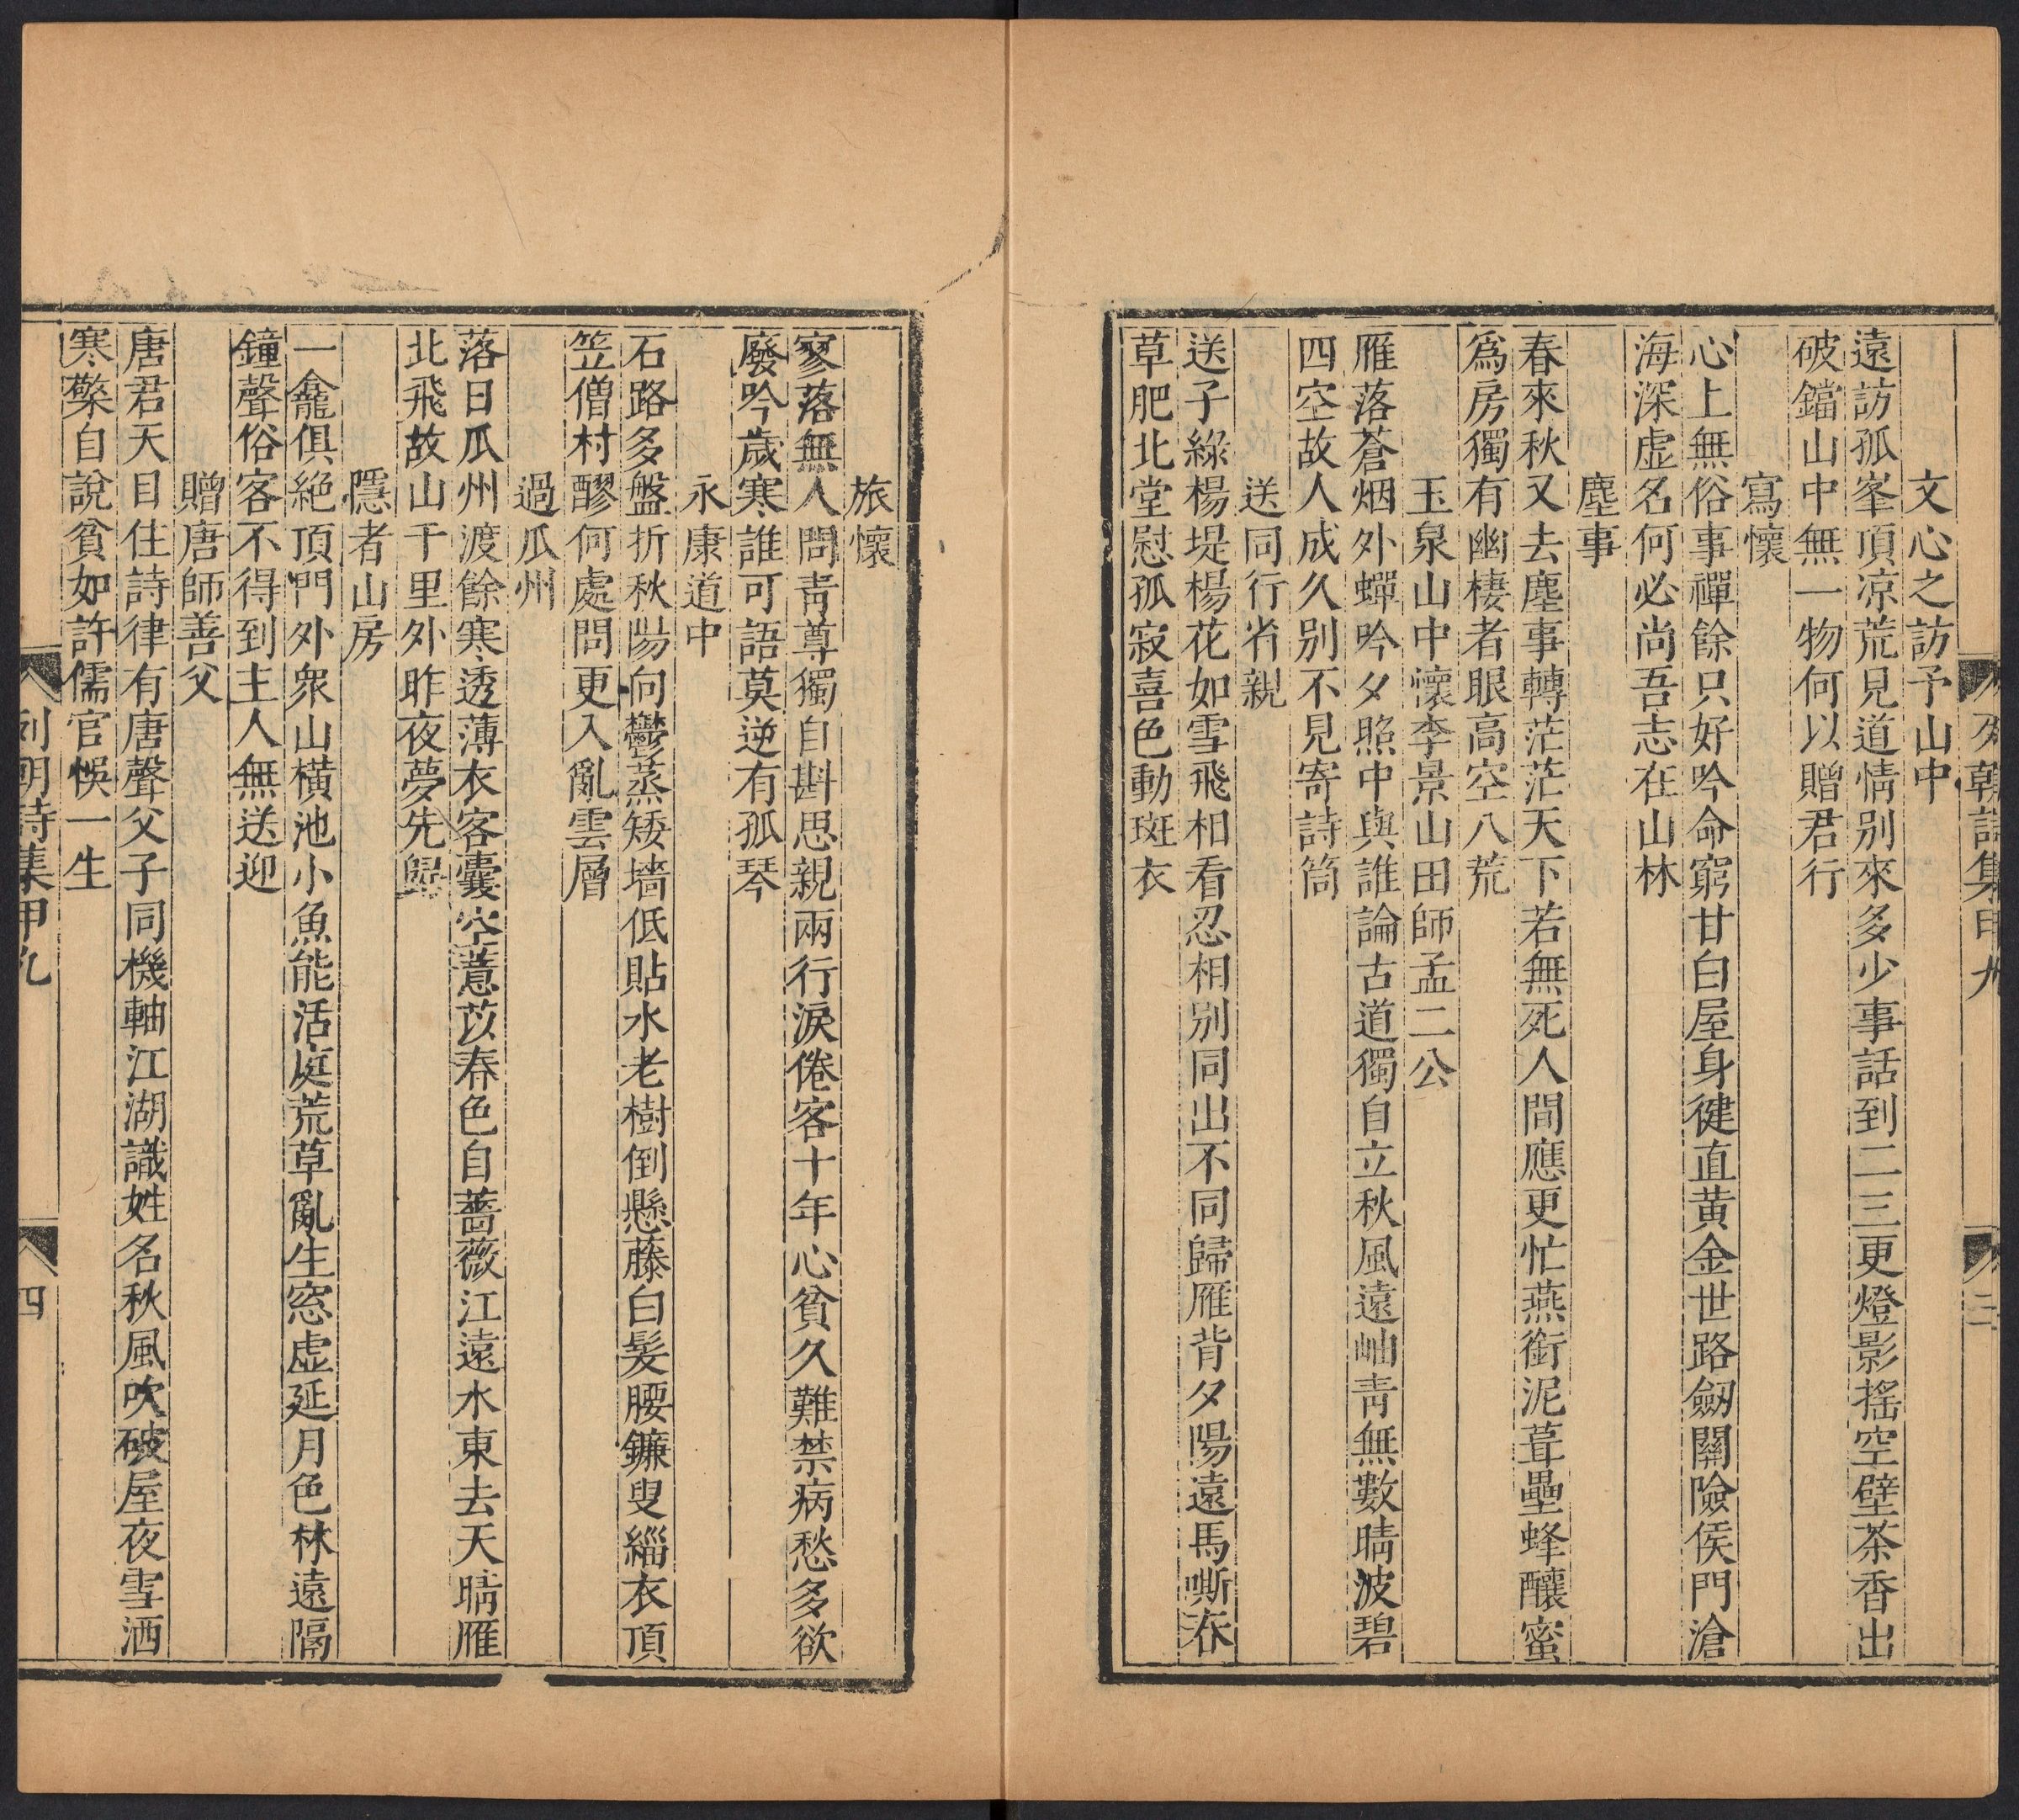 列朝詩集甲九
三
文心之訪予山中
遠訪孤峯頂凉荒見道情別來多少事話到二三更燈影搖空壁茶香出
破鐺山中無一物何以贈君行
寫懷
心上無俗事禪餘只好吟命窮甘白屋身健直黄金世路劒關險侯門滄
海深虛名何必尚吾志在山林
塵事
春來秋又去塵事轉茫茫天下若無死人間應更忙燕銜泥葺壘蜂釀蜜
爲房獨有幽棲者眼高空八荒
玉泉山中懷李景山田師孟二公
雁落蒼烟外蟬吟夕照中與誰論古道獨自立秋風遠岫靑無數晴波碧
四空故人成久別不見寄詩筒
送同行省親
送子綠楊堤楊花如雪飛相看忍相別同出不同歸雁背夕陽遠馬嘶春
草肥北堂慰孤寂喜色動斑衣
旅懷
寥落無人問靑尊獨自斟思親兩行淚倦客十年心貧久難禁病愁多欲
廢吟歲寒誰可語莫逆有孤琴
永康道中
石路多盤折秋陽向鬱蒸矮墻低貼水老樹倒懸藤白髮腰鐮叟緇衣頂
笠僧村醪何處問更入亂雲層
過瓜州
落日瓜州渡餘寒透薄衣客囊空薏苡春色自薔薇江遠水東去天晴雁
北飛故山千里外昨夜夢先歸
隱者山房
一龕俱絕頂門外衆山橫池小魚能活庭荒草亂生窓虛延月色林遠隔
鐘聲俗客不得到主人無送迎
贈唐師善父
唐君天目住詩律有唐聲父子同機軸江湖識姓名秋風吹破屋夜雪洒
寒檠自說貧如許儒官悞一生
列朝詩集甲九
四